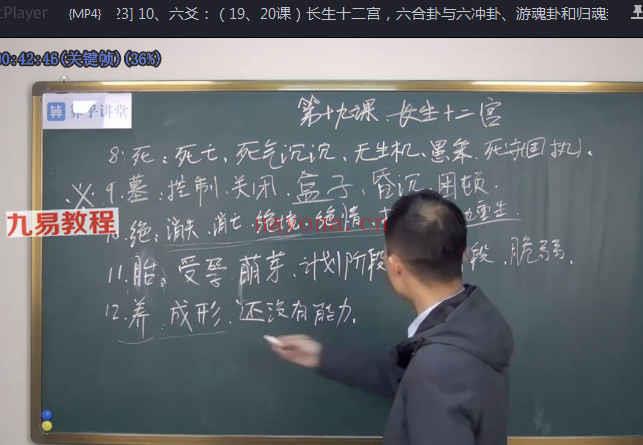 Player {MP4} 23] 10、六爻：（19、20课）长生十二宫，六合卦与六冲卦、游魂卦和归魂
0:42:46(关键帧)(36%)
算子讲堂
第十九课 长生十二宫
8.死：死亡、死气沉沉、无生机、愚笨、死守困
※9.墓.控制.关闭.盒子、昏沉.困顿.
九易教程
绝：消失.消亡.绝
重生.
11.胎：受孕.萌芽.计划阶段 段、脆弱.
12.养.成形.还没有能力.